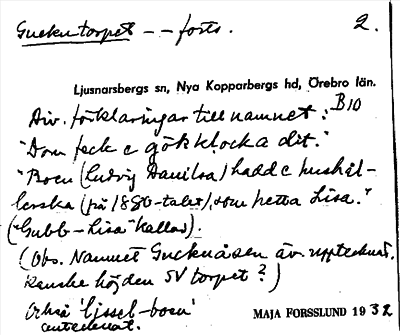 Guckutorpet - - forts. 2.
Ljusnarsbergs sn, Nya Kopparbergs hd, Örebro län.
Div. förklaringar till namnet: B10
"Dom feck e gökklocka dit."
"Boen (Ludvig Danilsa) hadde hushål-
lerska (på 1880-talet), som hetta Lisa."
("Gubb-Lisa" kallad).
(Obs. Namnet Guckuåsen äv. upptecknat.
Kanske höjden SV torpet?)
Också 'Lissel-boen'
antecknat.
MAJA FORSSLUND 1932